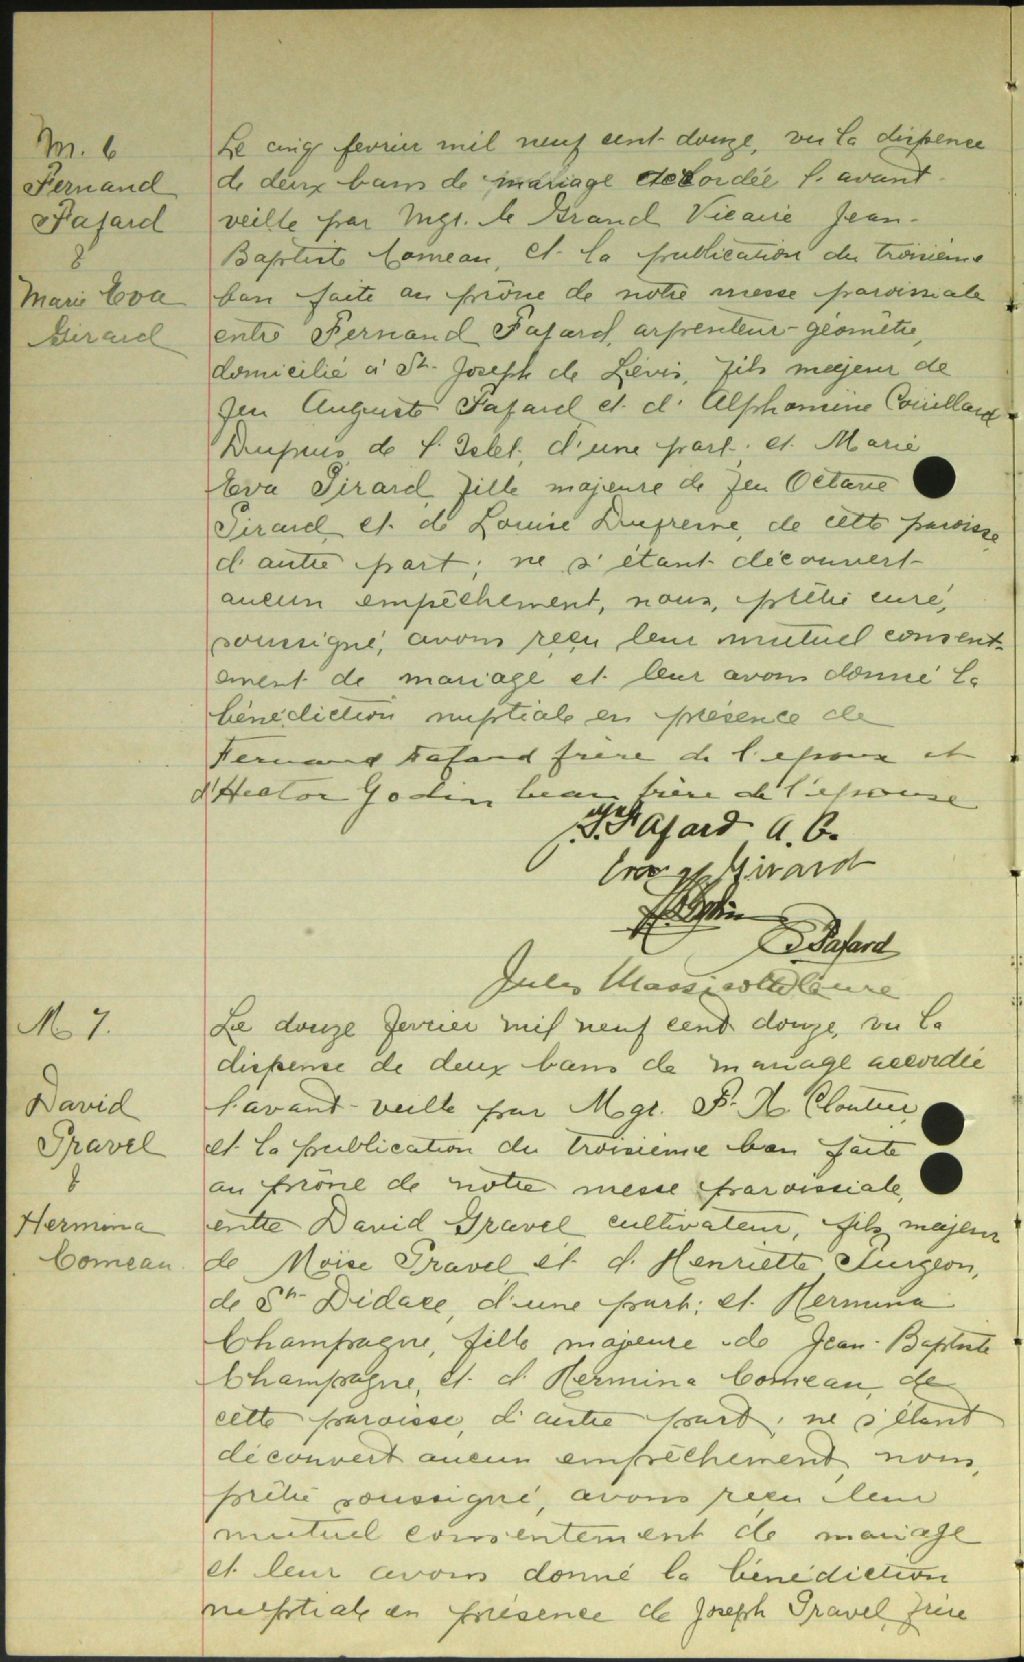 M. 6
Fernand
Fafard
&
Marie Eva
Girard
Le cinq fevrier mil neuf cent douze, vu la dispence
de deux bans de mariage accordée l'avant-
veille par Mgr. le Grand Vicaire Jean-
Baptiste Comeau, et la publication du troisième
ban faite au prône de notre messe paroissiale
entre Fernand Fafard, arpenteur-géomètre,
domicilié à St. Joseph de Lévis, fils majeur de
feu Auguste Fafard et d'Alphonsine Couillard
Dupuis, de l'Islet, d'une part; et Marie
Eva Girard fille majeure de feu Octave
Girard, et de Louise Dufresne, de cette paroisse,
d'autre part; ne s'étant découvert
aucun empêchement, nous, prêtre curé,
soussigné, avons reçu leur mutuel consent-
ement de mariage et leur avons donné la
bénédiction nuptiale en présence de
Fernand Fafard frère de l'epoux et
d'Hector Godin beau frère de l'épouse
Fafard A. G.
Eva Girard
Fafard
Jules Massicotte Ptre Cure
M 7.
David
Gravel
&
Hermina
Comeau
Le douze fevrier mil neuf cent douze, vu la
dispense de deux bans de mariage accordée
l'avant-veille par Mgr. F. X. Cloutier,
et la publication du troisième ban faite
au prône de notre messe paroissiale,
entre David Gravel cultivateur, fils majeur
de Moïse Gravel et d'Henriette Turgeon,
de St. Didace, d'une part; et Hermina
Champagne, fille majeure de Jean-Baptiste
Champagne, et d'Hermina Comeau, de
cette paroisse, d'autre part; ne s'étant
découvert aucun empêchement, nous,
prêtre soussigné, avons reçu leur
mutuel consentement de mariage
et leur avons donné la bénédiction
nuptiale en présence de Joseph Gravel, frère